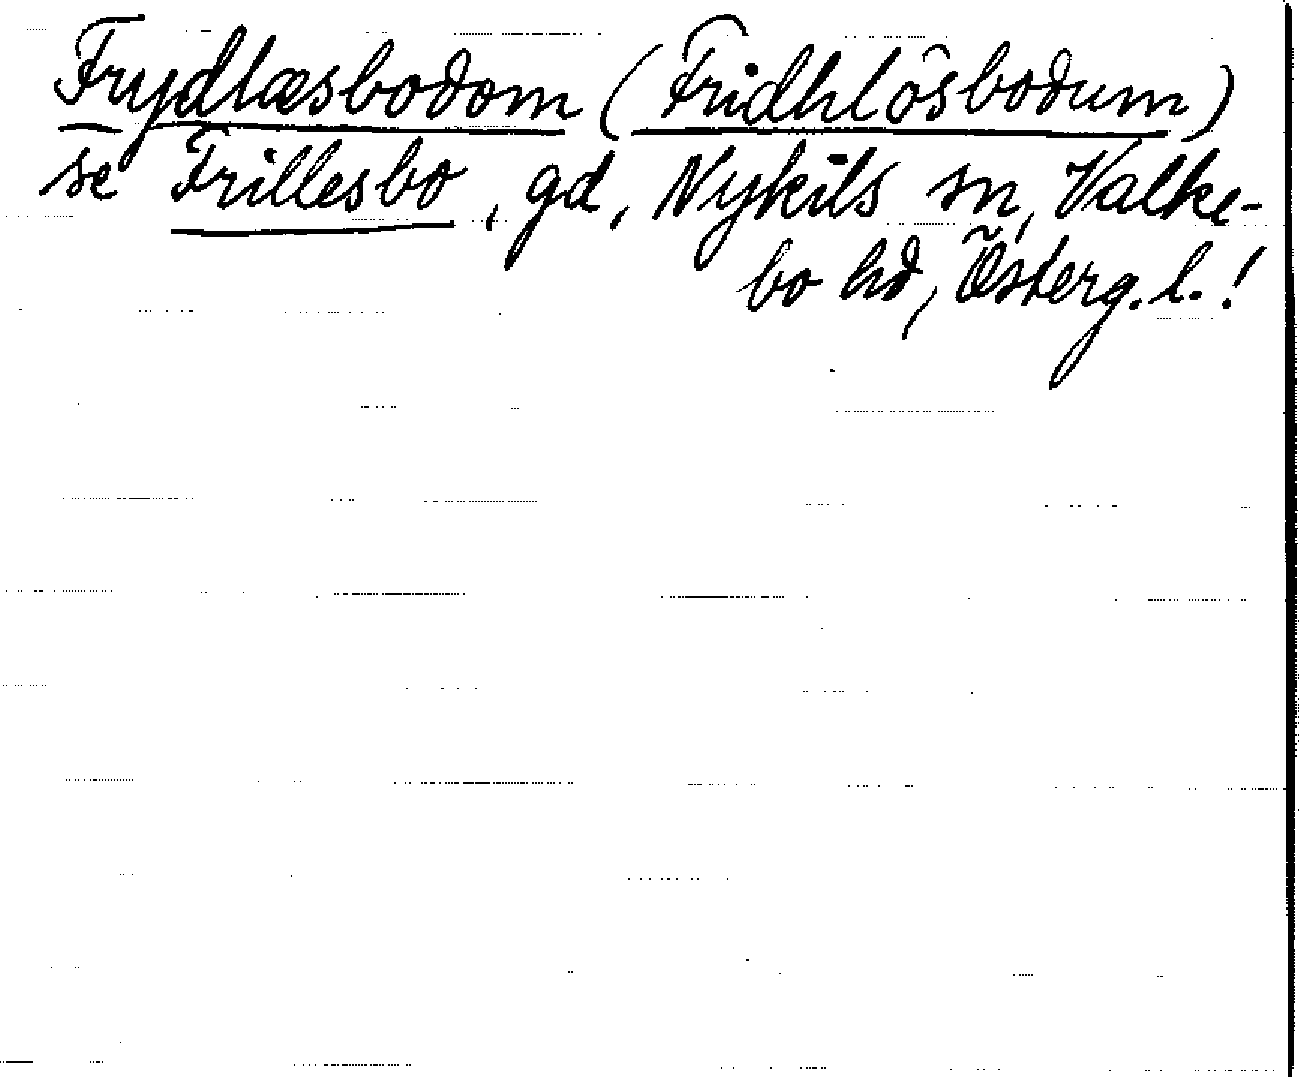 Frydlæsbodom (Fridhlösbodum)
se Frillesbo, gd, Nykils sn, Valke-
bo hd, Österg. l. !